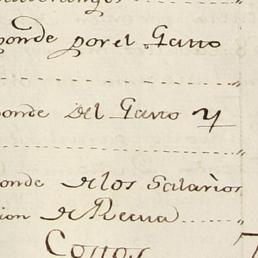 onde por el Gano
onde Del Gano y
onde de los Salarios
ion de Recua
Costos